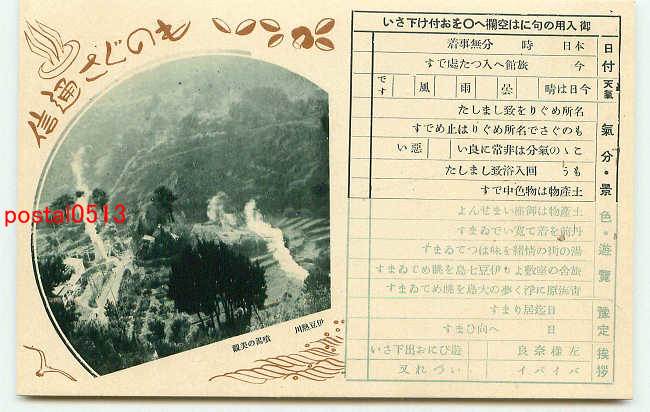 ものぐさ通信
御入用の句には空欄へ〇をお付け下さい
日付
本日 時 分無事着
今 旅館へ入つた處です
天氣
今日は晴 曇 雨 風 です
氣分・景色・遊覽
名所めぐりを致しました
ものぐさで名所めぐりは止めです
こゝの氣分は非常に良い 惡い
もう 回入浴致しました
土産物は物色中です
土産物は御座いませんよ
丹前を着て寛いでゐます
湯の街の情緒を味はつてゐます
旅舍の座敷より伊豆七島を眺めてゐます
青海原に浮く夢の大島を眺めてゐます
豫定
日迄居ります
日 へ向ひます
挨拶
左樣奈良 遊びにお出下さい
バイバイ いづれ又
伊豆熱川
噴湯の美觀
postal0513